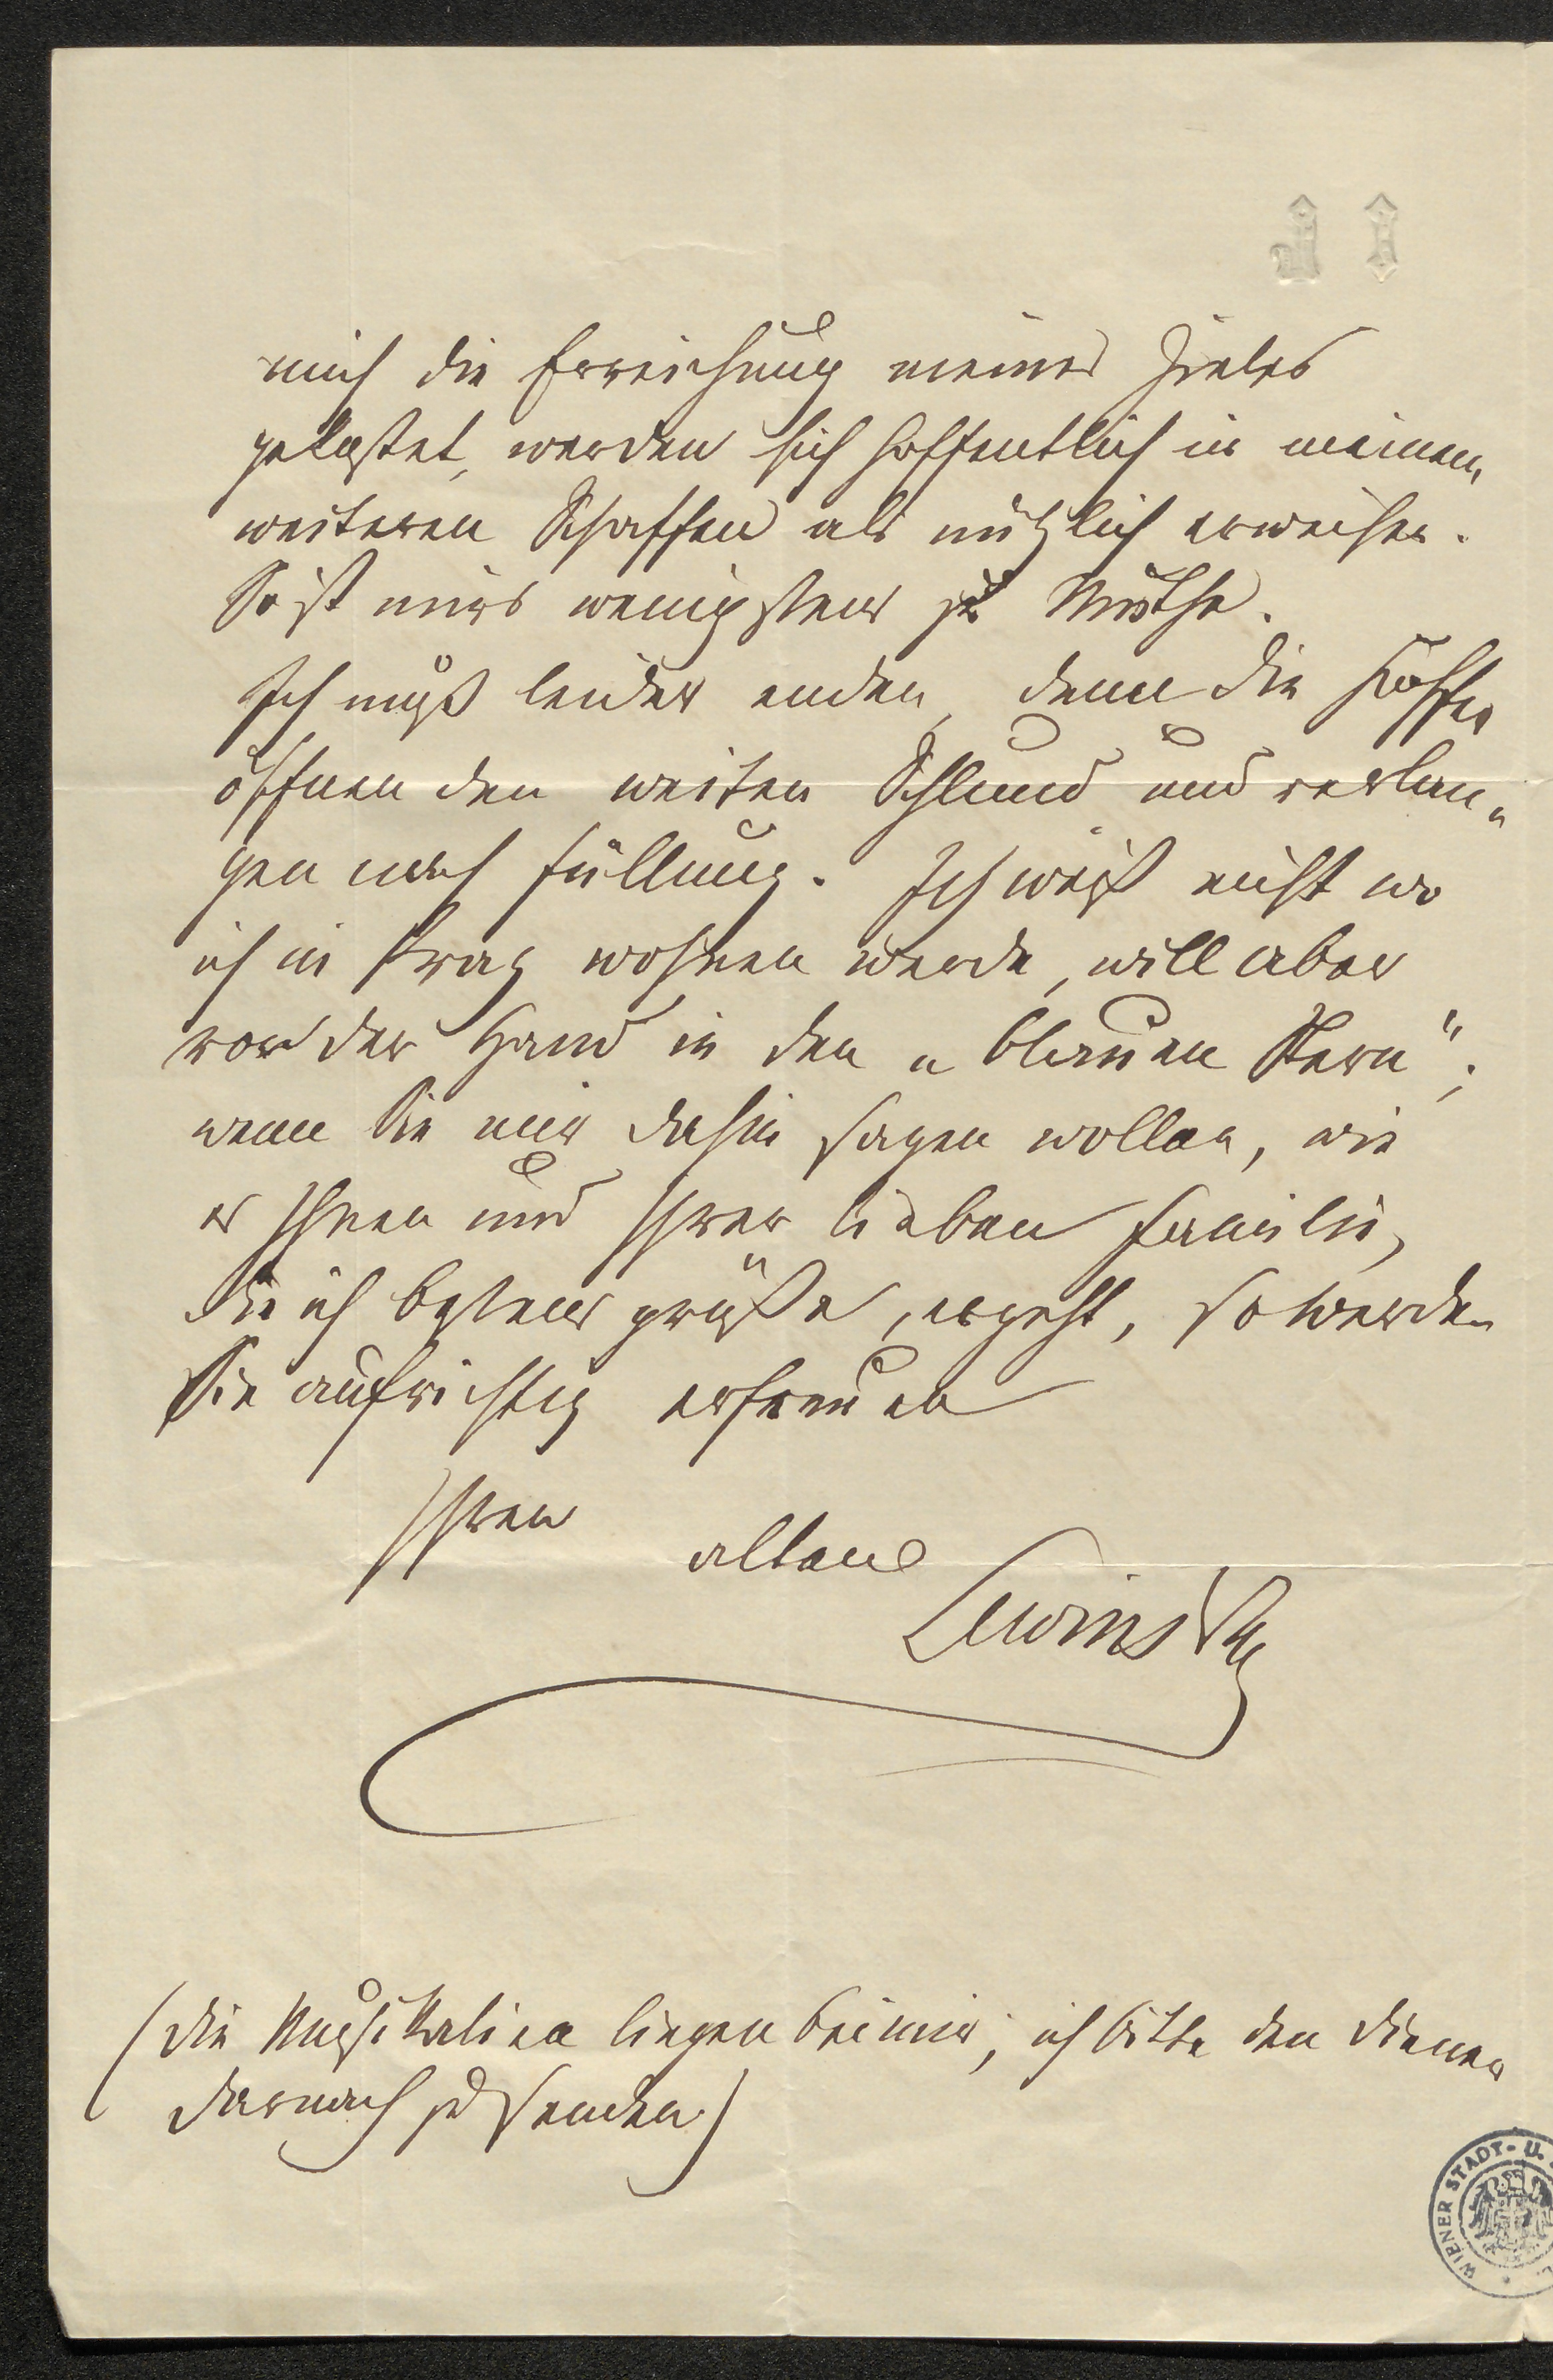 mich die Erreichung meines Zieles
gekostet, werden sich hoffentlich in meinem
weiteren Schaffen als nützlich erweisen.
So ist mirs wenigstens zu Muthe.
Ich muß leider enden, denn die Koffer
öffnen den weiten Schlund und verlan„
gen nach Füllung. Ich weiß nicht wo
ich in Prag wohnen werde, will aber
vor der Hand in den „blauen Stern“;
wenn Sie mir dahin sagen wollen, wie
es Ihnen und Ihrer lieben Familie,
die ich bestens grüße, ergeht, so werden
Sie aufrichtig erfreuen
Ihren
alten
Lewinsky
(Die Musikalien liegen bei mir; ich bitte den Diener
darnach zu senden)
WIENER STADT- U.